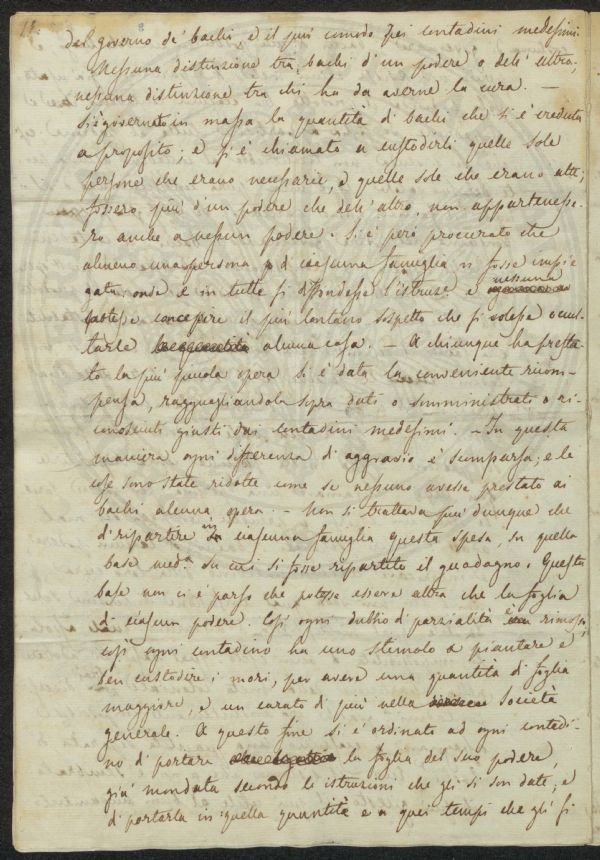 del governo de' bachi, e il più comodo pei contadini medesimi.
Nessuna distinzione tra bachi d'un podere o dell'altro,
nessuna distinzione tra chi ha da averne la cura. —
Si è governato in massa la quantità di bachi che si è creduta
a proposito; e si è chiamato a custodirli quelle sole
persone che erano necessarie, e quelle sole che erano atte;
fossero più d'un podere che dell'altro, non appartenesse-
ro anche a nessun podere. Si è però procurato che
almeno una persona d ciascuna famiglia vi fosse impie
gata; onde e in tutte si diffondesse l'istruze. e nessuna
potesse concepire il più lontano sospetto che si volesse occul-
tarle alcuna cosa. — A chiunque ha presta-
to la più piccola opera si è data la conveniente ricom-
pensa, ragguagliandola sopra dati o somministrati o ri-
conosciuti giusti dai contadini medesimi. — In questa
maniera ogni differenza d'aggravio è scomparsa; e le
cose sono state ridotte come se nessuno avesse prestato ai
bachi alcuna opera. — Non si trattava più dunque che
di ripartire in ciascuna famiglia questa spesa, su quella
base meda. su cui si fosse ripartito il guadagno. Questa
base non ci è parso che potesse essere altra che la foglia
di ciascun podere. Così ogni dubbio di parzialità rimosso,
così ogni contadino ha uno stimolo a piantare e
ben custodire i mori, per avere una quantità di foglia
maggiore, e un carato di più nella Società
generale. A questo fine si è ordinato ad ogni contadi-
no di portare la foglia del suo podere,
già mondata secondo le istruzioni che gli si son date; e
di portarla in quella quantità e a quei tempi che gli si